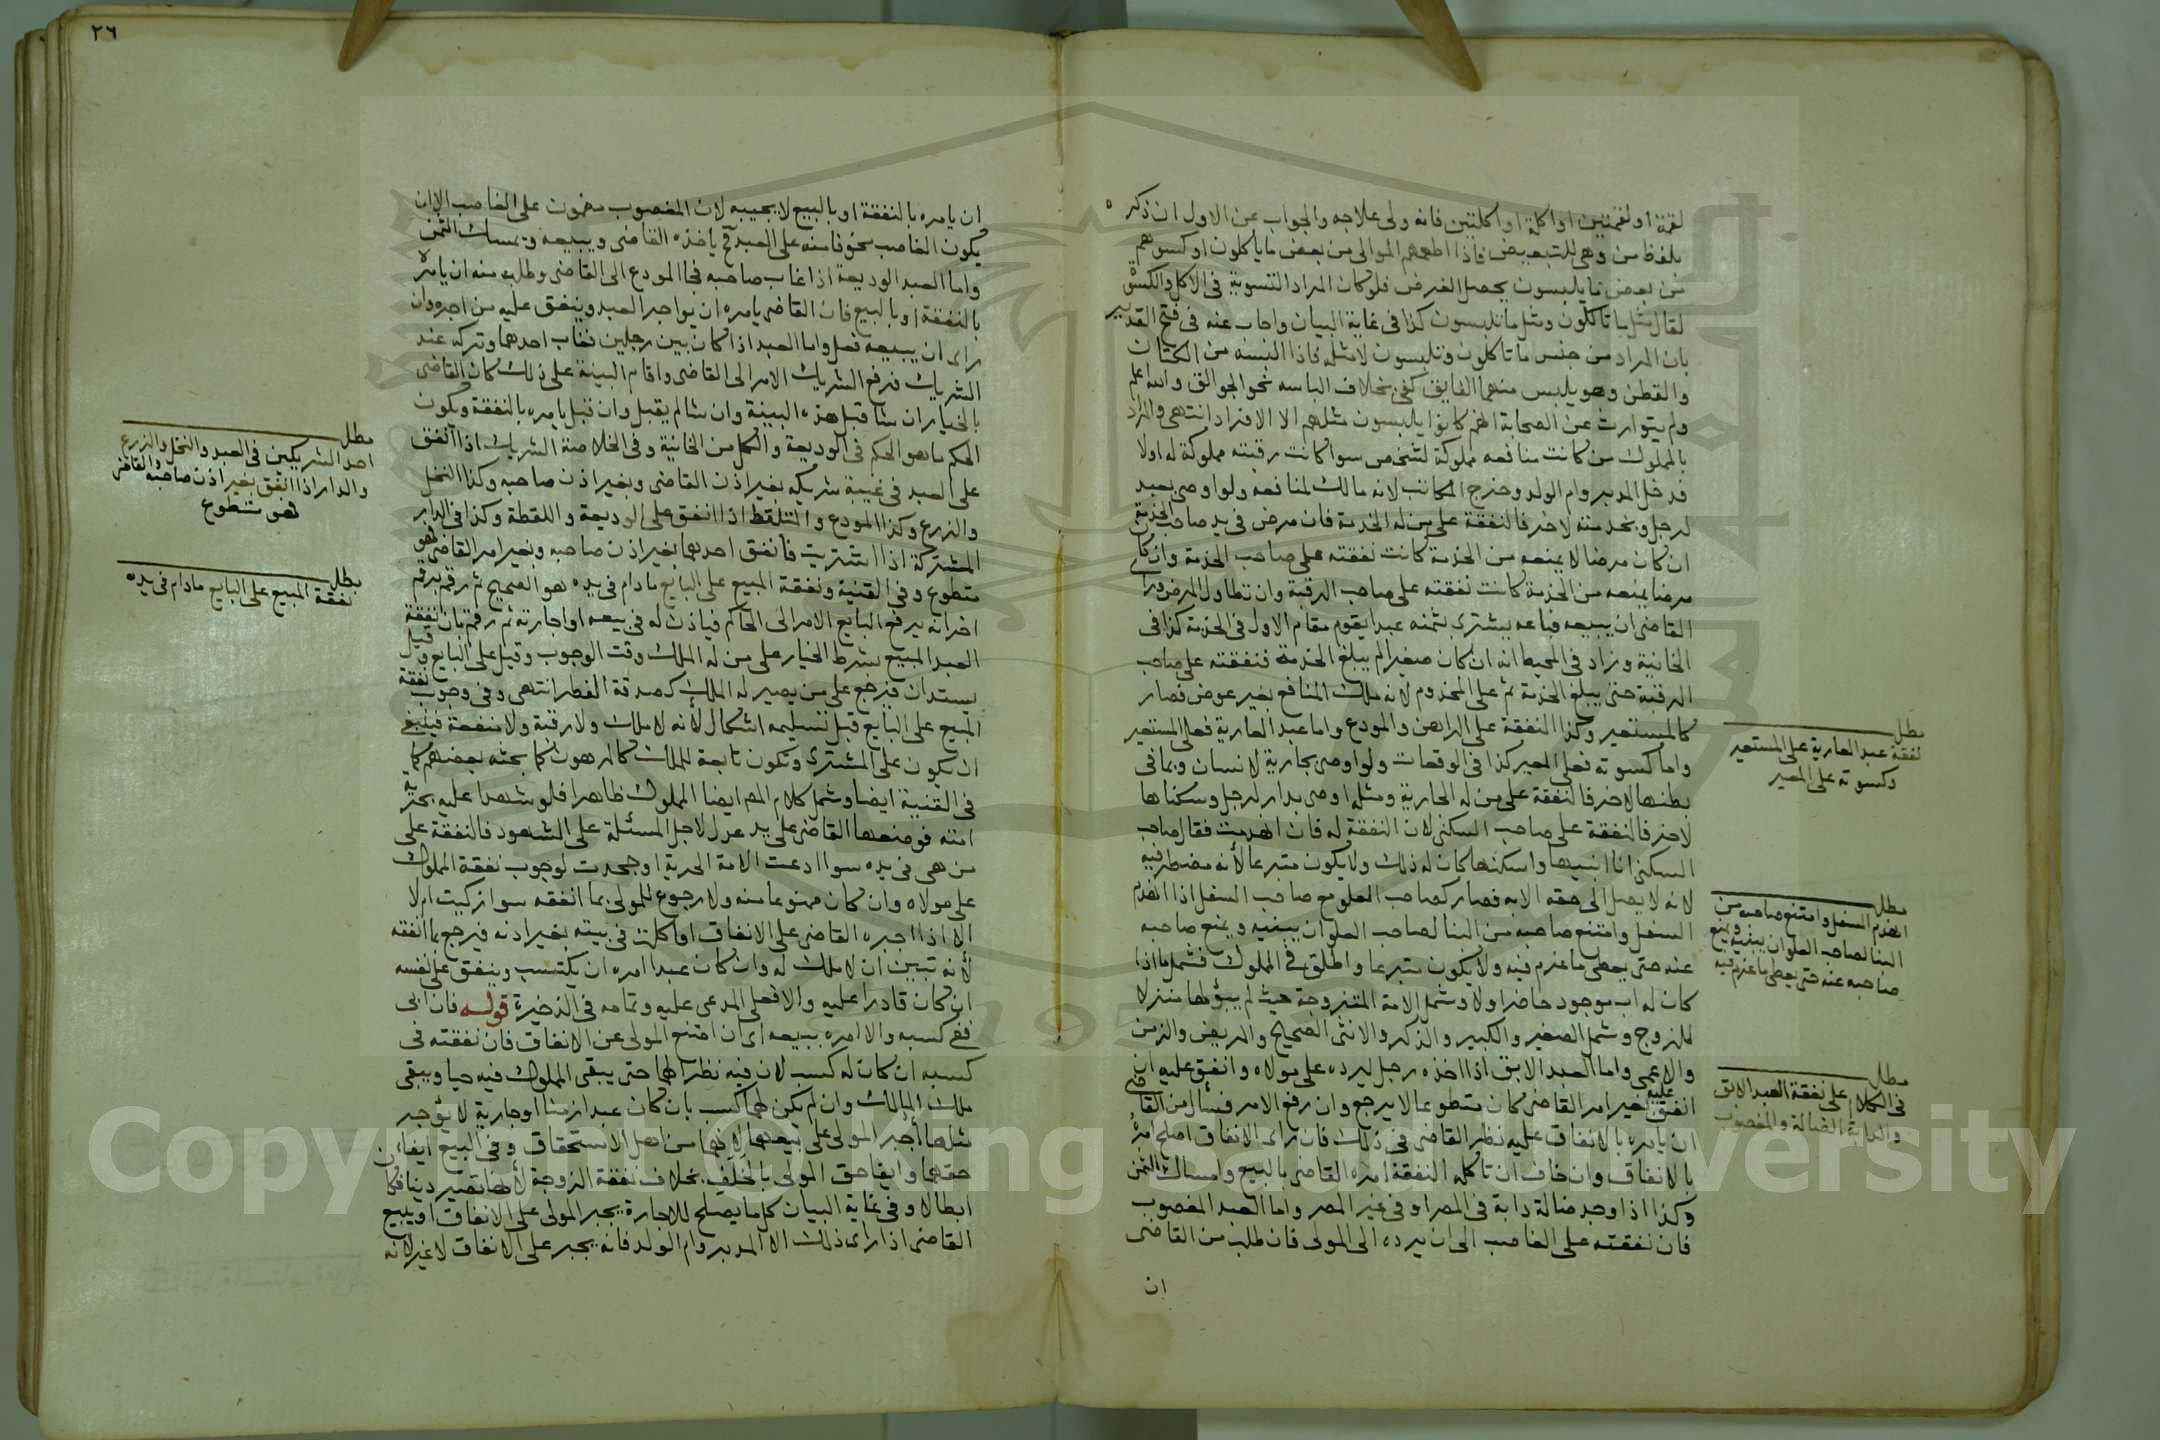 لقمة او لقمتين او اكلة او اكلتين فانه ولى علاجه والجواب عن الاول ان ذكره
بلفظ من وهى للتبعيض فاذا اطعمهم الموالى من بعض ما ياكلون او كسوهم
من بعض ما يلبسون يحصل الغرض فلو كان المراد التسوية فى الاكل والكسوة
لقال مثل ما تاكلون ومثل ما تلبسون كذا فى غاية البيان واجاب عنه فى فتح القدير
بان المراد من جنس ما تاكلون وتلبسون لا مثله فاذا البسه من الكتان
والقطن وهو يلبس منهما الفايق كفى بخلاف الباسه نحو الجوالق والله اعلم
ولم يتوارث عن الصحابة انهم كانوا يلبسون مثلهم الا الافراد انتهى والمراد
بالمملوك من كانت منافعه مملوكة لشخص سوا كانت رقبته مملوكة له او لا
فدخل المدبر وام الولد وخرج المكاتب لانه مالك لمنافعه ولو اوصى بعبد
لرجل وبخدمته لاخر فالنفقة على من له الخدمة فان مرض فى يد صاحب الخدمة
ان كان مرضا لا يمنعه من الخدمة كانت نفقته على صاحب الخدمة وان كان
مرضا يمنعه من الخدمة كانت نفقته على صاحب الرقبة وان تطاول المرض وراى
القاضى ان يبيعه فباعه يشترى بثمنه عبدا يقوم مقام الاول فى الخدمة كذا فى
الخانية وزاد فى المحيط انه ان كان صغيرا لم يبلغ الخدمة فنفقته على صاحب
الرقبة حتى يبلغ الخدمة ثم على المخدوم لانه ملك المنافع بغير عوض فصار
كالمستعير وكذا النفقة على الراهن والمودع واما عبد العارية فعلى المستعير
واما كسوته فعلى المعير كذا فى الوقعات ولو اوصى بجارية لانسان وبما فى
بطنها لاخر فالنفقة على من له الجارية ومثله اوصى بدار لرجل وسكناها
لاخر فالنفقة على صاحب السكنى لان النفقة له فان انهدمت فقال صاحب
السكنى انا ابنيها واسكنها كان له ذلك ولا يكون متبرعا لأنه مضطر فيه
لانه لا يصل الى حقه الا به فصار كصاحب العلو مع صاحب السفل اذا انهدم
السفل وامتنع صاحبه من البنا لصاحب العلو ان يبنيه ويمنع صاحبه
عنه حتى يعطى ما غرم فيه ولا يكون متبرعا واطلق فى المملوك فشمل ما اذا
كان له اب موجود حاضر اولا وشمل الامة المتزوجة حيث لم يبوئها منزلا
للزوج وشمل الصغير والكبير والذكر والانثى الصحيح والمريض والزمن
والاعمى واما العبد الابق اذا اخذه رجل ليرده على مولاه وانفق عليه ان
انفق عليه بغير امر القاضى كان متطوعا لا يرجع وان رفع الامر فسأل من القاضى
ان يامره بالانفاق عليه نظر القاضى فى ذلك فان راى الانفاق اصلح امره
بالانفاق وان خاف ان تاكله النفقة امره القاضى بالبيع وامساك الثمن
وكذا اذا وجد ضالة دابة فى المصر او فى غير المصر واما العبد المغصوب
فان نفقته على الغاصب الى ان يرده الى المولى فان طلب من القاضى
ان
مطلب
نفقة عبد العارية على المستعير
وكسوته على المعير
مطلب
انهدم السفل وامتنع صاحبه من
البنا لصاحب العلو ان يبنيه ويمنع
صاحبه عنه حتى يعطى ما غرم فيه
مطلب
فى الكلام على نفقة العبد الابق
والدابة الضالة والمغصوب
٢٦
ان يامره بالنفقة او بالبيع لا يجيبه لان المغصوب مضمون على الغاصب الا ان
يكون الغاصب مخوفا منه على العبد فح ياخذه القاضى ويبيعه ويمسك الثمن
واما العبد الوديعة اذا غاب صاحبه فجا المودع الى القاضى وطلب منه ان يامره
بالنفقة او بالبيع فان القاضى يامره ان يواجر العبد وينفق عليه من اجره وان
راى ان يبيعه فعل واما العبد اذا كان بين رجلين فغاب احدهما وتركه عند
الشريك فرفع الشريك الامر الى القاضى واقام البينة على ذلك كان القاضى
بالخيار ان شا قبل هذه البينة وان شا لم يقبل وان قبل يامره بالنفقة ويكون
الحكم ما هو الحكم فى الوديعة والكل من الخانية وفى الخلاصة الشريك اذا انفق
على العبد فى غيبة شريكه بغير اذن القاضى وبغير اذن صاحبه وكذا النخل
والزرع وكذا المودع والملتقط اذا انفق على الوديعة واللقطة وكذا فى الدار
المشتركة اذا استرمت فانفق احدهما بغير اذن صاحبه وبغير امر القاضى فهو
متطوع وفى القنية ونفقة المبيع على البايع ما دام فى يده هو الصحيح ثم رقم برقم
اخر انه يرفع البايع الامر الى الحاكم فياذن له فى بيعه او اجارته ثم رقم بان نفقة
العبد المبيع بشرط الخيار على من له الملك وقت الوجوب وقيل على البايع وقيل
يستدان فيرجع على من يصير له الملك كصدقة الفطر انتهى وفى وجوب نفقة
المبيع على البايع قبل تسليمه اشكال لأنه لا ملك ولا رقبة ولا منفعة فينبغى
ان يكون على المشترى وتكون تابعة للملك كالمرهون كما بحثه بعضهم كما
فى القنية ايضا وشمل كلام المص ايضا المملوك ظاهرا فلو شهدا عليه بحرية
امته فوضعها القاضى على يد عدل لاجل المسئلة على الشهود فالنفقة على
من هى فى يده سوا ادعت الامة الحرية او جحدت لوجوب نفقة المملوك
على مولاه وان كان ممنوعا منه ولا رجوع للمولى بما انفقه سوا زكيت ام لا
الا اذا اجبره القاضى على الانفاق او اكلت فى بيته بغير اذنه فيرجع بما انفقه
لأنه تبين ان لا ملك له وان كان عبدا امره ان يكتسب وينفق على نفسه
ان كان قادرا عليه والا فعلى المدعى عليه وتمامه فى الذخيرة قوله فان ابى
ففى كسبه والا امره ببيعه اى ان امتنع المولى عن الانفاق فان نفقته فى
كسبه ان كان له كسب لان فيه نظرا لهما حتى يبقى المملوك فيه حيا ويبقى
ملك المالك وان لم يكن لهما كسب بان كان عبدا زمنا او جارية لا يؤجر
مثلها أجبر المولى على بيعهما لانهما من اهل الاستحقاق وفى البيع ايفاء
حقهما وايفا حق المولى بالخلف بخلاف نفقة الزوجة لأنها تصير دينا فكان
ابطالا وفى غاية البيان كل ما يصلح للاجارة يجبر المولى على الانفاق او يبيع
القاضى اذا راى ذلك الا المدبر وام الولد فانه يجبر على الانفاق لا غير لانه
مطلب
احد الشريكين فى العبد والنخل والزرع
والدار اذا انفق بغير اذن صاحبه والقاضى
فهو متطوع
مطلب
نفقة المبيع على البايع ما دام فى يده
Copyright © King Saud University
1957